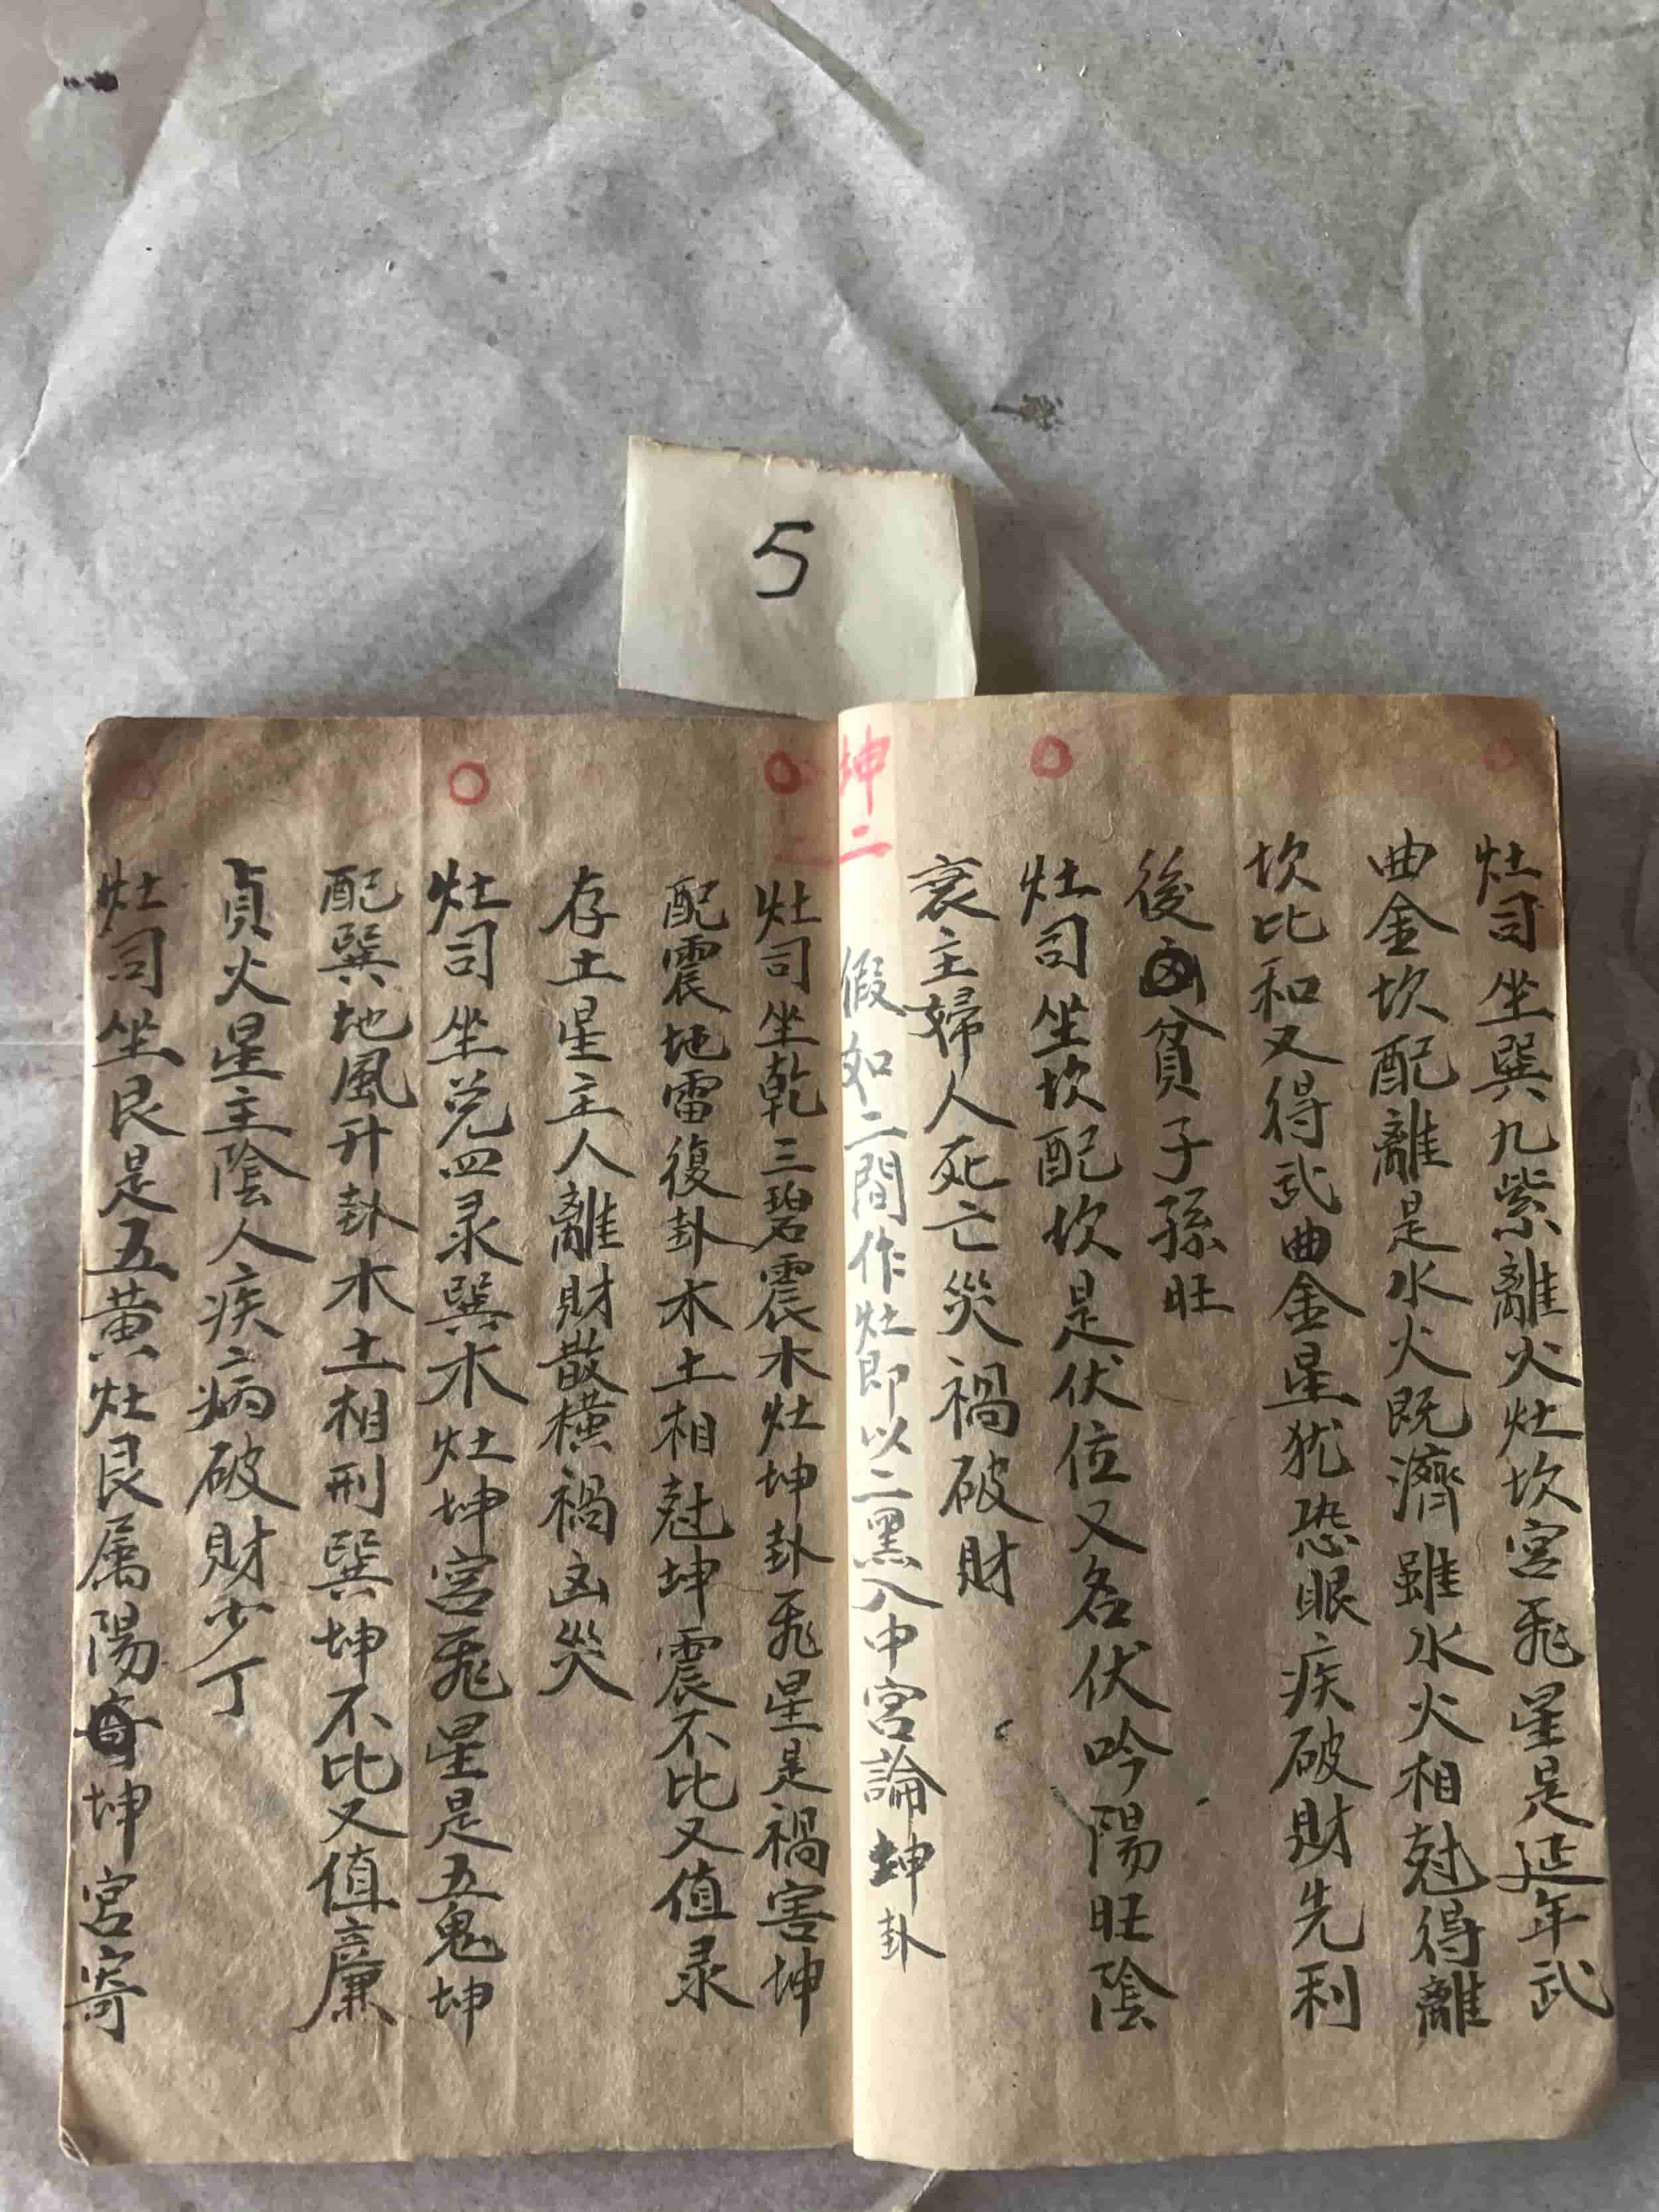 5
灶司坐巽九紫離火灶坎宮飛星是延年武
曲金坎配離是水火既濟雖水火相尅得離
坎比和又得武曲金星犹恐眼疾破財先利
後凶貧子孫旺
灶司坐坎配坎是伏位又名伏吟陽旺陰
衰主婦人死亡災禍破財
坤二
假如二間作灶即以二黑入中宮論坤卦
灶司坐乾三碧震木灶坤卦飛星是禍害坤
配震地雷復卦木土相尅坤震不比又值录
存土星主人離財散橫禍凶災
灶司坐兌四录巽木灶坤宮飛星是五鬼坤
配巽地風升卦木土相刑巽坤不比又值廉
貞火星主陰人疾病破財少丁
灶司坐艮是五黃灶艮属陽坤宮寄